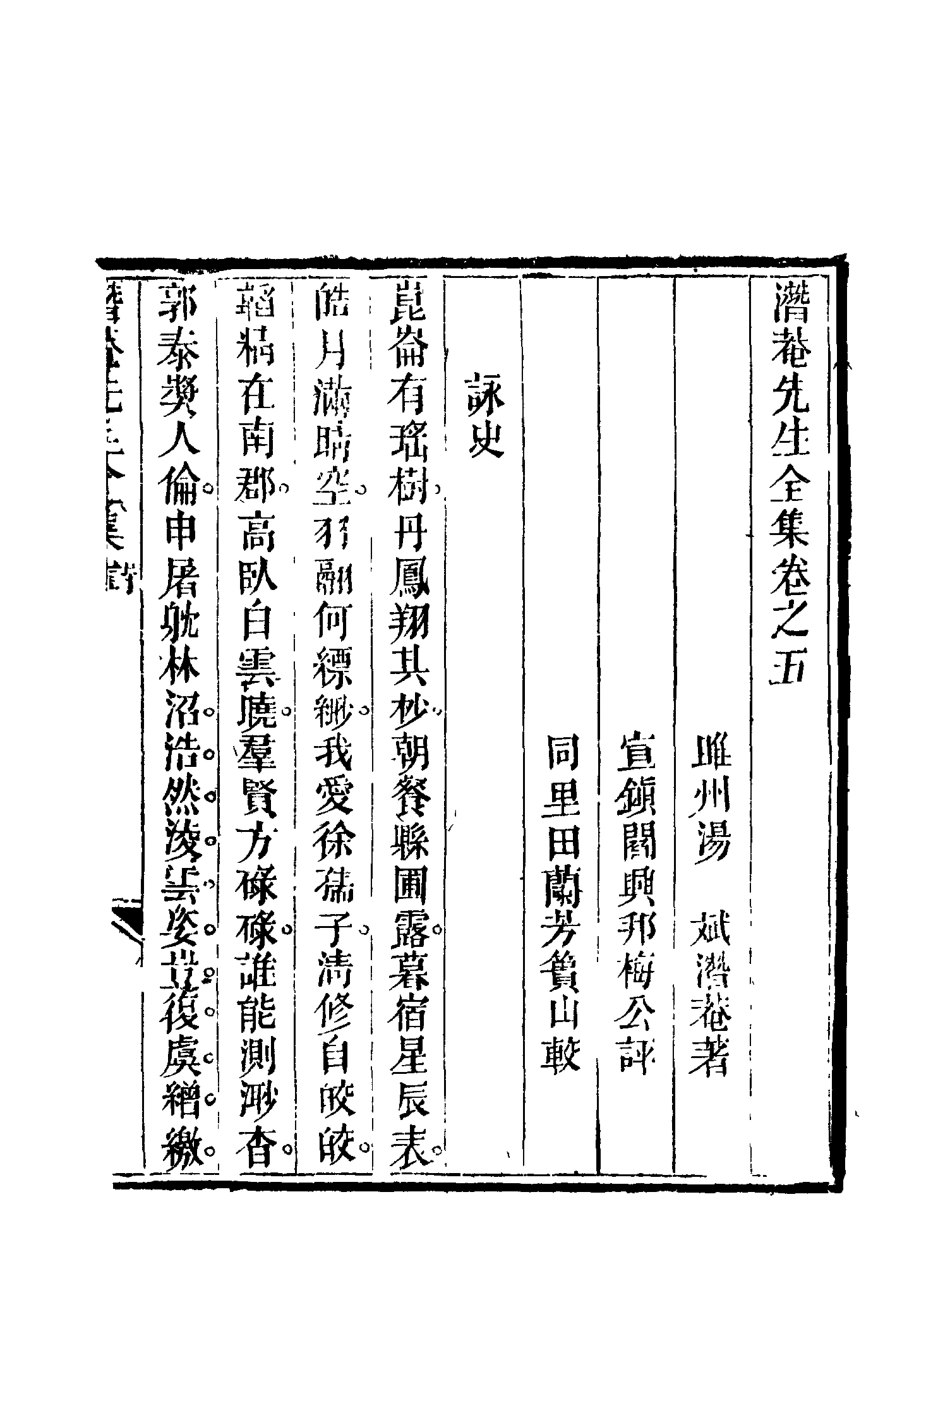 潛菴先生全集卷之五
睢州湯　斌潛菴著
宣鎮閻興邦梅公評
同里田蘭芳簣山較
詠史
崑崙有瑤樹。丹鳳翔其杪。朝餐縣圃露。暮宿星辰表。
皓月滿晴空。羽翮何縹緲。我愛徐孺子。清修自皎皎。
韜精在南郡。高臥白雲曉。羣賢方碌碌。誰能測渺杳。
郭泰獎人倫。申屠躭林沼。浩然淩雲姿。豈復虞繒繳。
潛菴先生全集 詩